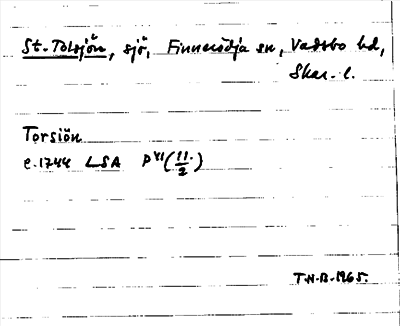 St. Tolsjön, sjö, Finnerödja sn, Vadsbo hd,
Skar. l.
Torsiön
c. 1744 LSA P^41 (11/2)
T.H.B. 1965.